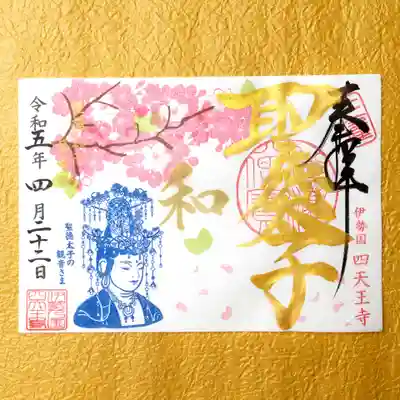 奉拝
伊勢国 四天王寺
聖徳太子
和
聖徳太子の
観音さま
令和五年四月二十二日